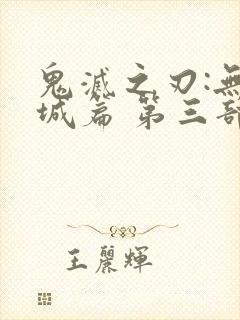 鬼滅之刃:無
城篇 第三部
王麗輝